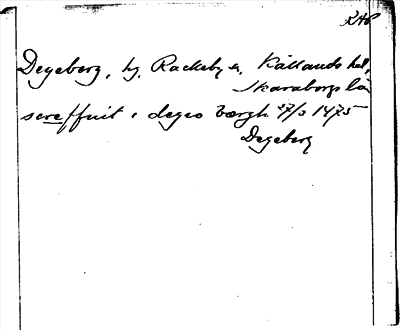 RAP
Degeberg, hg, Rackeby sn, Kållands hd,
Skaraborgs län
screffuit i degeo bergh 27/3 1475
Degeberg